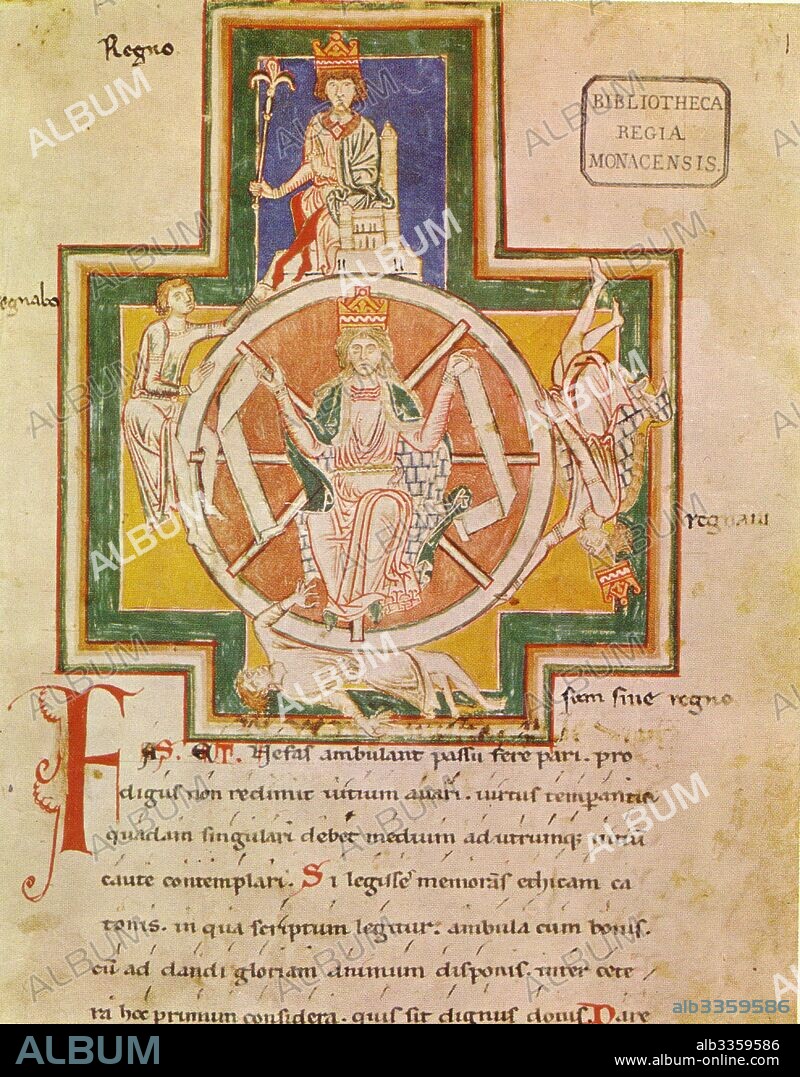 Regno
1
BIBLIOTHECA
REGIA
MONACENSIS.
egnabo
regnaui
sum sine regno
FAS. ET. Nefas ambulant passu fere pari. pro
digus non redimit uitium auari. uirtus temperantia
quadam singulari debet medium ad utrumque uitiū
caute contemplari. Si legisse memorās ethicam ca
tonis. in qua scriptum legitur. ambula cum bonis.
cū ad dandi gloriam animum disponis. inter cete
ra hoc primum considera. quis sit dignus donis. Dare
ALBUM
alb3359586
ALBUM
alb3359586
www.album-online.com